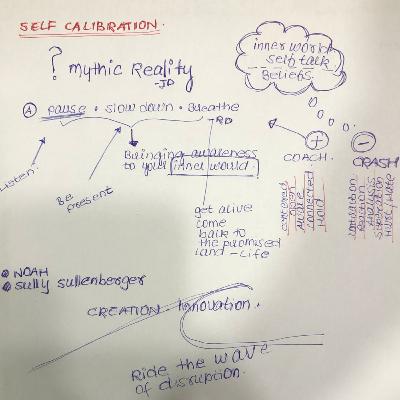 SELF CALIBRATION.
? mythic Reality
-JD
inner world
self talk
Beliefs
A pause • slow down • Breathe
-RD
Bringing awareness
to your inner world.
Listen.
Be present
get alive
come
back to
the promised
land - life
+ -
COACH. CRASH
centered
open
aware
connected
hold
contraction
reaction
analysis
separation
hurt/hate
NOAH
sully sullenberger
CREATION. Innovation.
Ride the wave
of disruption.